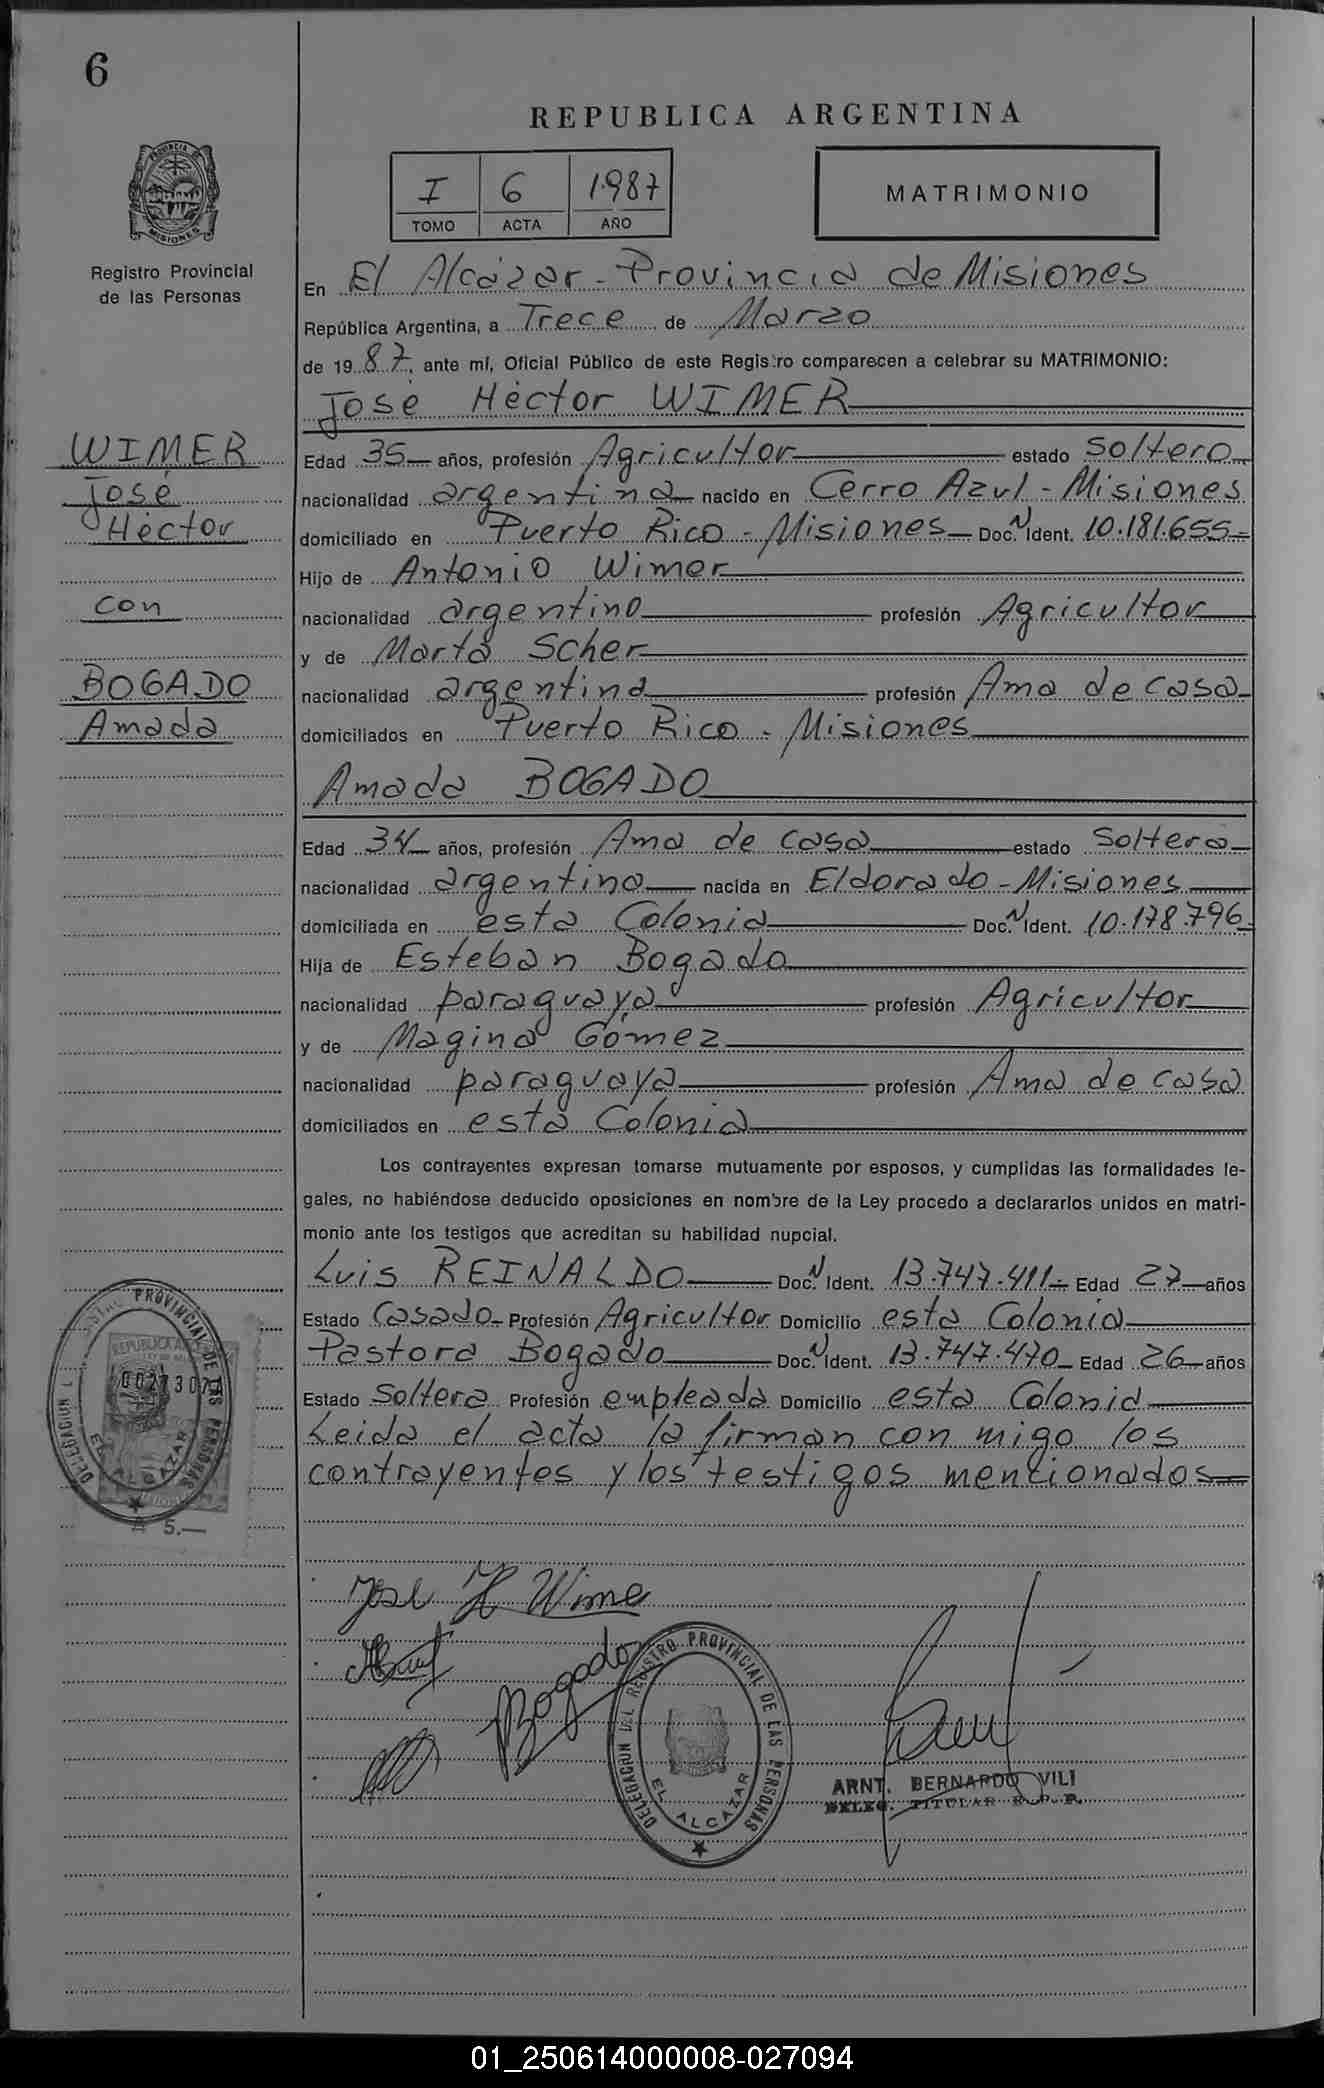 6
REPUBLICA ARGENTINA
PROVINCIA DE
MISIONES
Registro Provincial
de las Personas
I 6 1987
TOMO ACTA AÑO
MATRIMONIO
En El Alcázar - Provincia de Misiones
República Argentina, a Trece de Marzo
de 19 87, ante mí, Oficial Público de este Registro comparecen a celebrar su MATRIMONIO:
José Héctor WIMER
WIMER
José
Héctor
con
BOGADO
Amada
Edad 35 años, profesión Agricultor estado soltero
nacionalidad argentina nacido en Cerro Azul - Misiones
domiciliado en Puerto Rico - Misiones Doc. N Ident. 10.181.655
Hijo de Antonio Wimer
nacionalidad argentino profesión Agricultor
y de Marta Scher
nacionalidad argentina profesión Ama de casa
domiciliados en Puerto Rico - Misiones
Amada BOGADO
Edad 34 años, profesión Ama de casa estado soltera
nacionalidad argentina nacida en Eldorado - Misiones
domiciliada en esta Colonia Doc. N Ident. 10.178.796
Hija de Esteban Bogado
nacionalidad paraguaya profesión Agricultor
y de Magina Gómez
nacionalidad paraguaya profesión Ama de casa
domiciliados en esta Colonia
Los contrayentes expresan tomarse mutuamente por esposos, y cumplidas las formalidades le-
gales, no habiéndose deducido oposiciones en nombre de la Ley procedo a declararlos unidos en matri-
monio ante los testigos que acreditan su habilidad nupcial.
Luis REINALDO Doc. N Ident. 13.747.411 Edad 27 años
Estado Casado Profesión Agricultor Domicilio esta Colonia
Pastora Bogado Doc. N Ident. 13.747.470 Edad 26 años
Estado Soltera Profesión empleada Domicilio esta Colonia
Leida el acta la firman con migo los
contrayentes y los testigos mencionados
PROVINCIAL DE LAS PERSONAS
DELEGACION
EL ALCAZAR
REPUBLICA
5.—
José H Wime
Bogado
DELEGACION DEL REGISTRO PROVINCIAL DE LAS PERSONAS
EL ALCAZAR
ARNT. BERNARDO VILI
DELEG. TITULAR R. P. P.
01_250614000008-027094